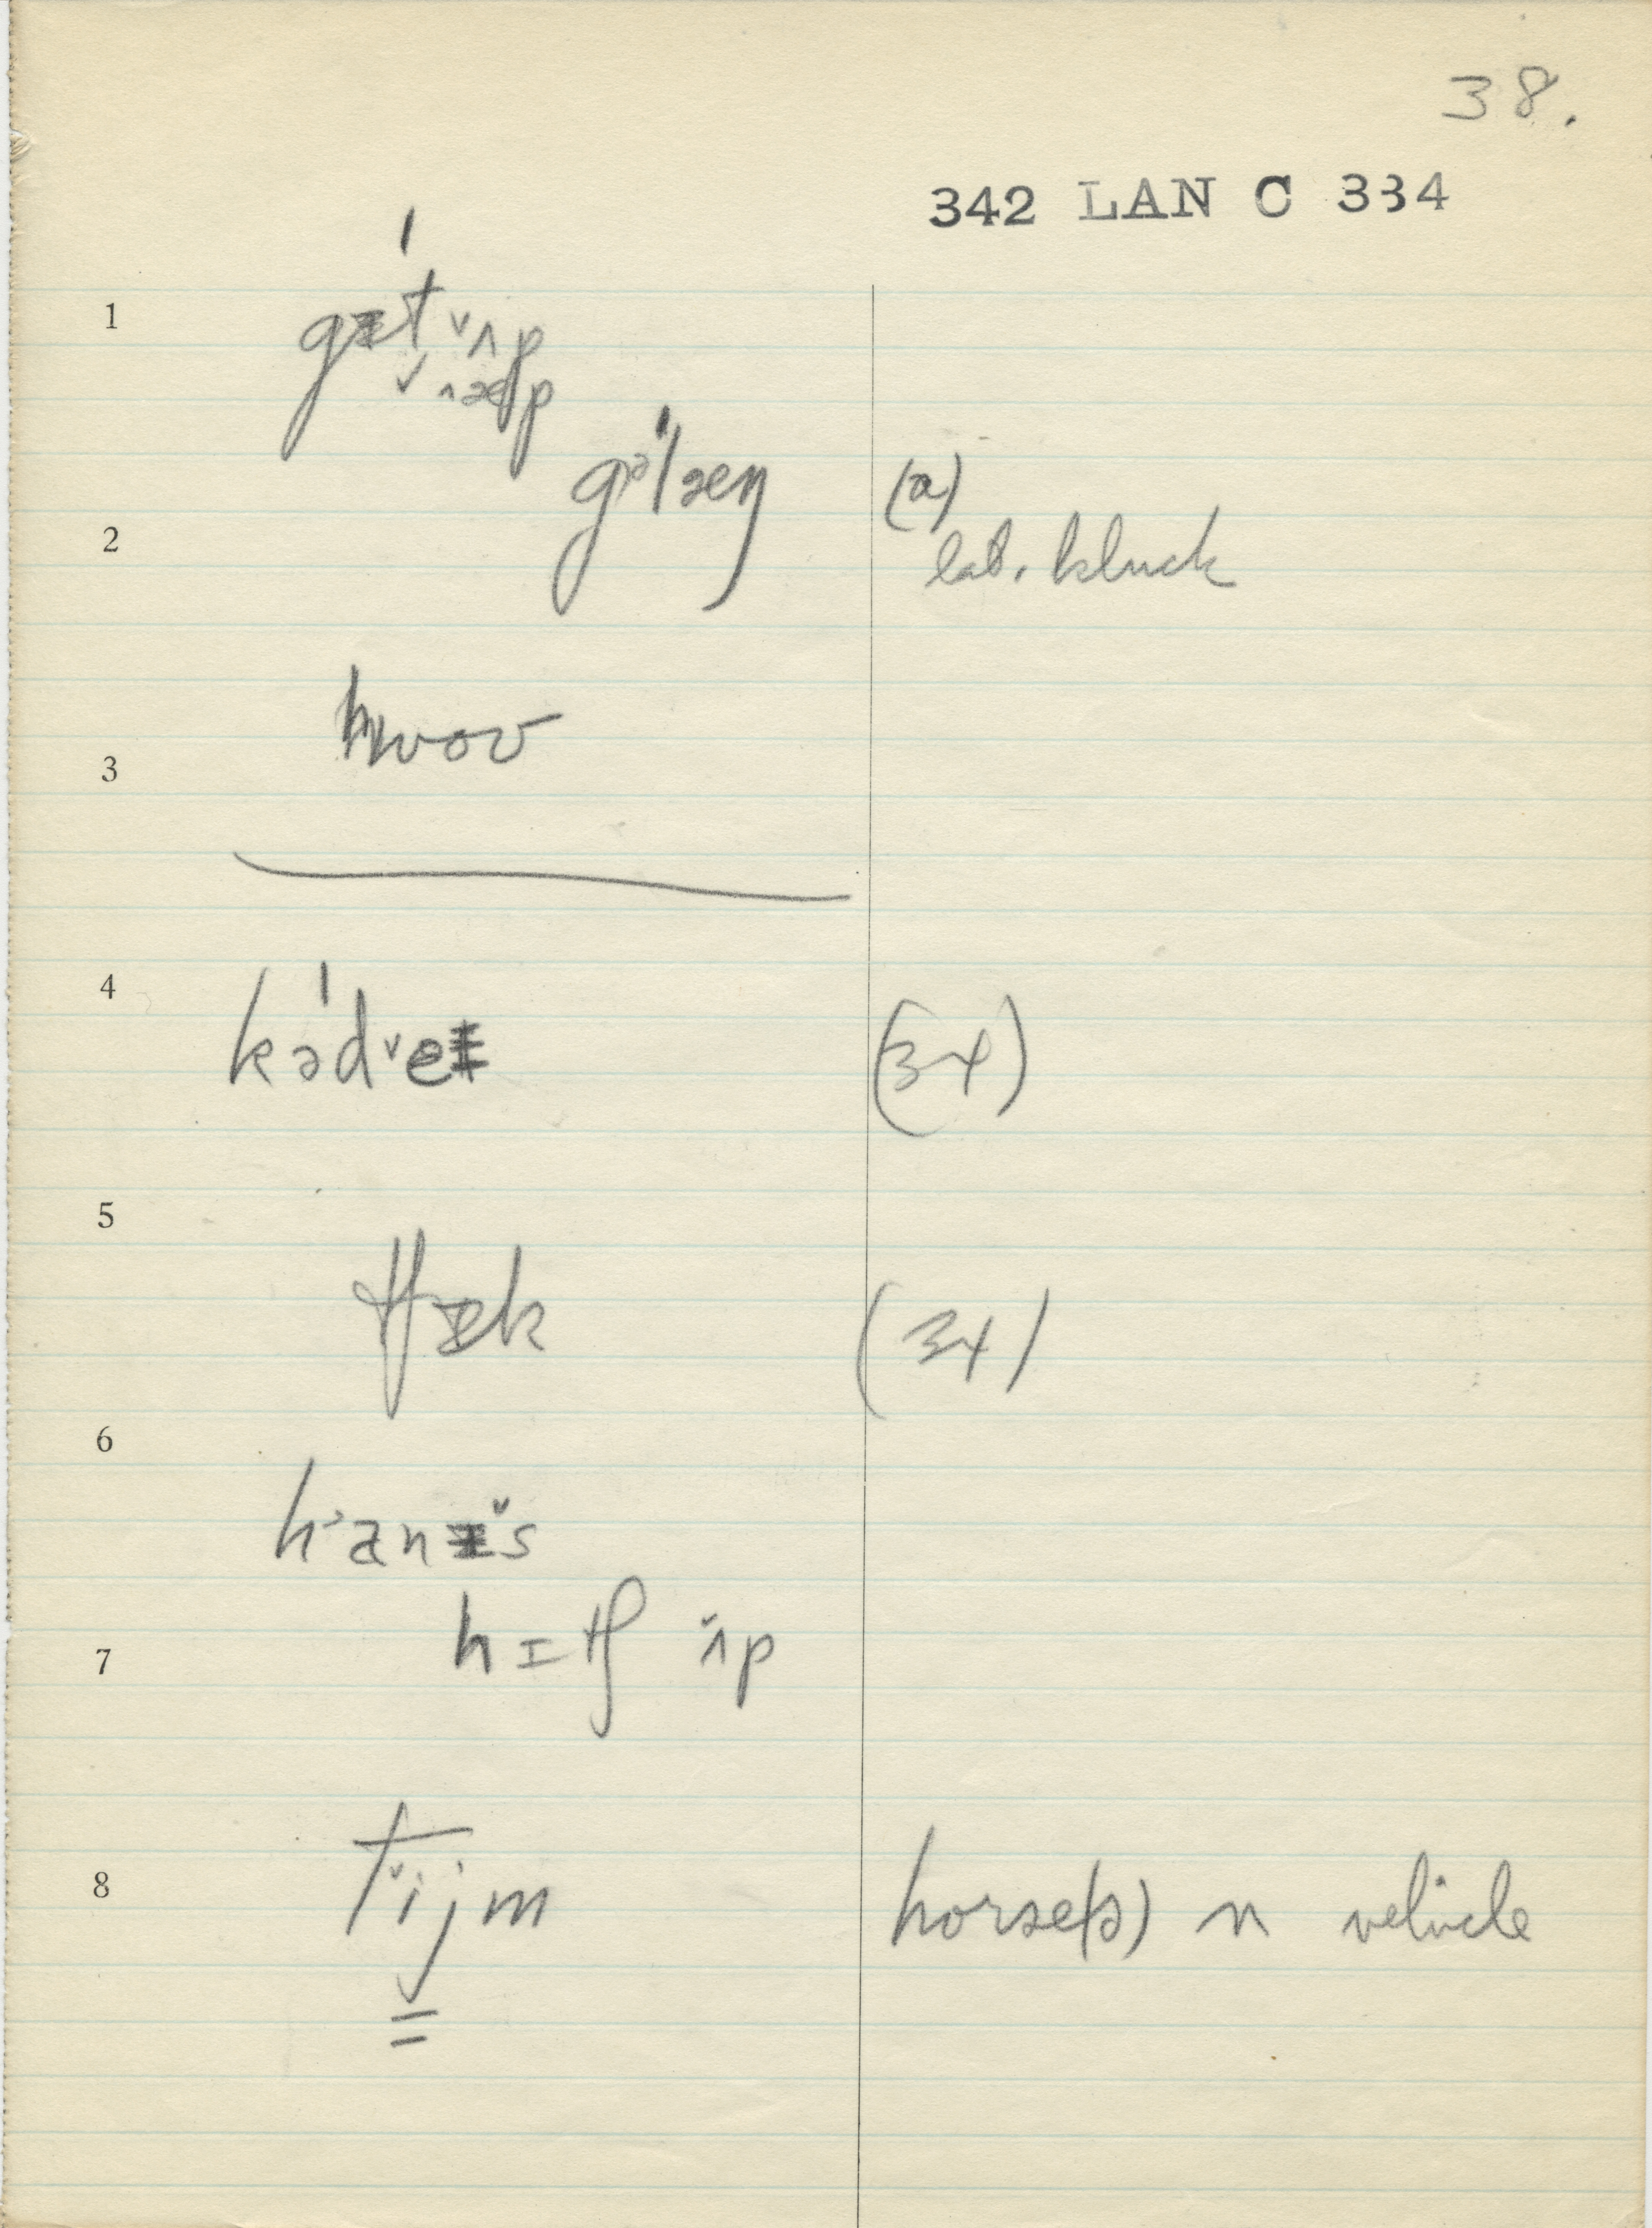 38.
342 LAN C 334
1
gɪt ˅ʌp
2
gəlæŋ (a)
lab. kluck
3
hwoʊ
4
kəd˅eɪ (34)
5
tʃɛk (34)
6
h anɪ˅s
7
hɪtʃ ʌ̌p
8
t˅ijm horse(s) n vehicle